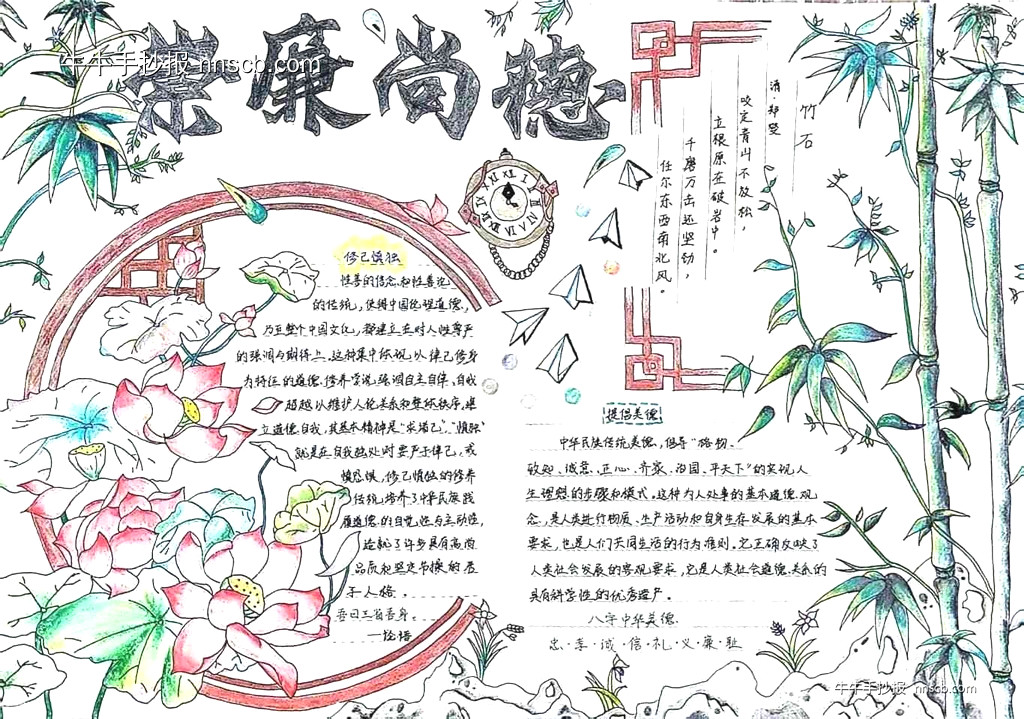 崇廉尚德
牛牛手抄报 nnscb.com
竹石
清·郑燮
咬定青山不放松，
立根原在破岩中。
千磨万击还坚劲，
任尔东西南北风。
修己慎独
性善的信念和性善论
的传统，使得中国伦理道德，
乃至整个中国文化，都建立在对人性尊严
的强调与期待上，这种集中体现，以律己修身
为特征的道德修养学说，强调自主自律，自我
超越以维护人伦关系和整体秩序，建
立道德自我，其基本精神是“求诸己”。“慎独”
就是在自我独处时要严于律己，戒
慎恐惧，修己慎独的修养
传统，培养了中华民族践
履道德的自觉性与主动性，
造就了许多具有高尚
品质和坚定节操的君
子人格。
吾日三省吾身。
—论语
提倡美德
中华民族传统美德，倡导“格物、
致知、诚意、正心、齐家、治国、平天下”的实现人
生理想的步骤和模式。这种为人处事的基本道德观
念，是人类进行物质、生产活动和自身生存发展的基本
要求，也是人们共同生活的行为准则。它正确反映了
人类社会发展的客观要求，它是人类社会道德关系的
具有科学性的优秀遗产。
八字中华美德
忠·孝·诚·信·礼·义·廉·耻
牛牛手抄报 nnscb.com